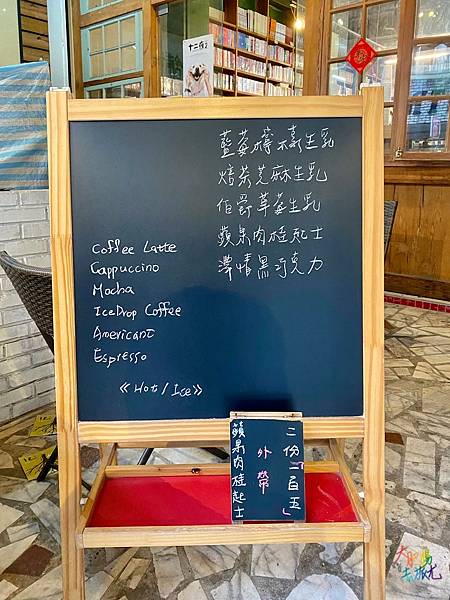 十二夜2
藍莓檸檬生乳
焙茶芝麻生乳
伯爵草莓生乳
蘋果肉桂起士
濃情黑巧克力
Coffee Latte
Cappuccino
Mocha
IceDrop Coffee
Americano
Espresso
《Hot/Ice》
二份「百五」
外帶
蘋果肉桂起士